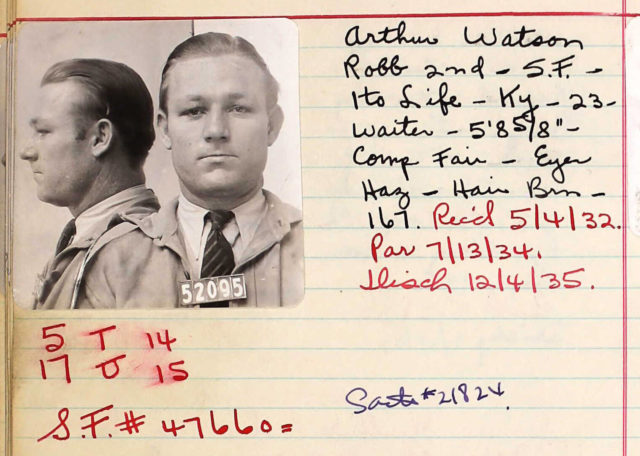 Arthur Watson
Robb 2nd - S.F. -
1to Life - Ky - 23 -
Waiter - 5'8 5/8" -
Comp Fair - Eyes
Haz - Hair Brn -
167. Rec'd 5/4/32.
Par 7/13/34.
Disch 12/4/35.
52095
5 T 14
17 U 15
Sacto #21824.
S.F. # 47660=